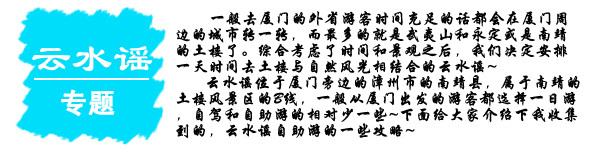 云水谣
专题
一般去厦门的外省游客时间充足的话都会在厦门周
边的城市转一转，而最多的就是武夷山和永定或是南靖
的土楼了。综合考虑了时间和景观之后，我们决定安排
一天时间去土楼与自然风光相结合的云水谣~
云水谣位于厦门旁边的漳州市的南靖县，属于南靖的
土楼风景区的B线，一般从厦门出发的游客都选择一日游
，自驾和自助游的相对少一些~下面给大家介绍下我收集
到的，云水谣自助游的一些攻略~